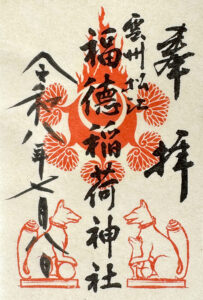 奉拝
雲州松江
福徳稲荷神社
令和八年七月八日